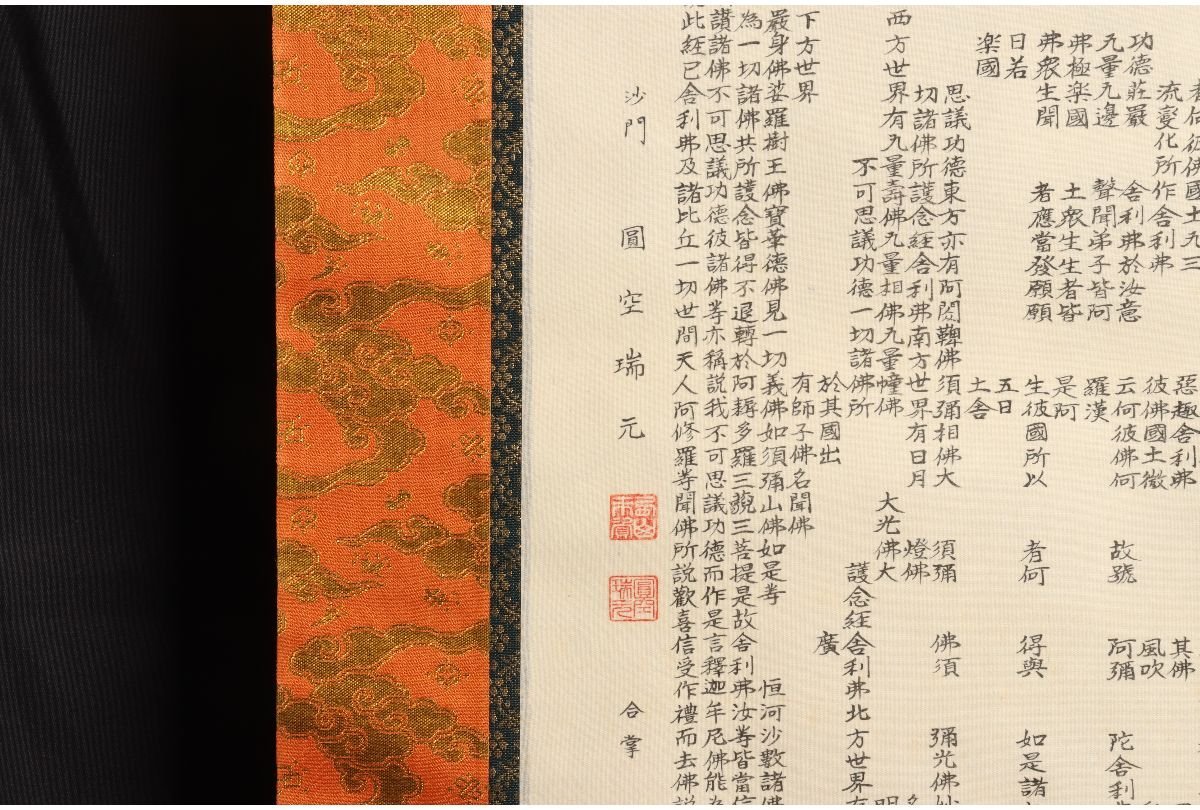 者何彼佛國土无三 惡趣舍利弗 其佛
流變化所作舍利弗 彼佛國土微 風吹
功德莊嚴 舍利弗於汝意 云何彼佛何 故號 阿彌 陀舍利
无量无邊 聲聞弟子皆阿 羅漢
弗極楽國 土衆生生者皆 是阿
弗衆生聞 者應當發願願 生彼國所以 者何 得與 如是諸
日若 五日
楽國 土舍
思議功德東方亦有阿閦鞞佛須彌相佛大 須彌 佛須 彌光佛妙
切諸佛所護念經舍利弗南方世界有日月 燈佛 名
西方世界有无量壽佛无量相佛无量幢佛 大光佛大 明
不可思議功德一切諸佛所 護念經舍利弗北方世界有
於其國出 廣
下方世界 有師子佛名聞佛
嚴身佛娑羅樹王佛寶華德佛見一切義佛如須彌山佛如是等 恒河沙數諸佛
為一切諸佛共所護念皆得不退轉於阿耨多羅三藐三菩提是故舍利弗汝等皆當信
讚諸佛不可思議功德彼諸佛等亦稱說我不可思議功德而作是言釋迦牟尼佛能為
此經已舍利弗及諸比丘一切世間天人阿修羅等聞佛所說歡喜信受作禮而去佛説
沙門 圓空瑞元 合掌
圓空瑞元